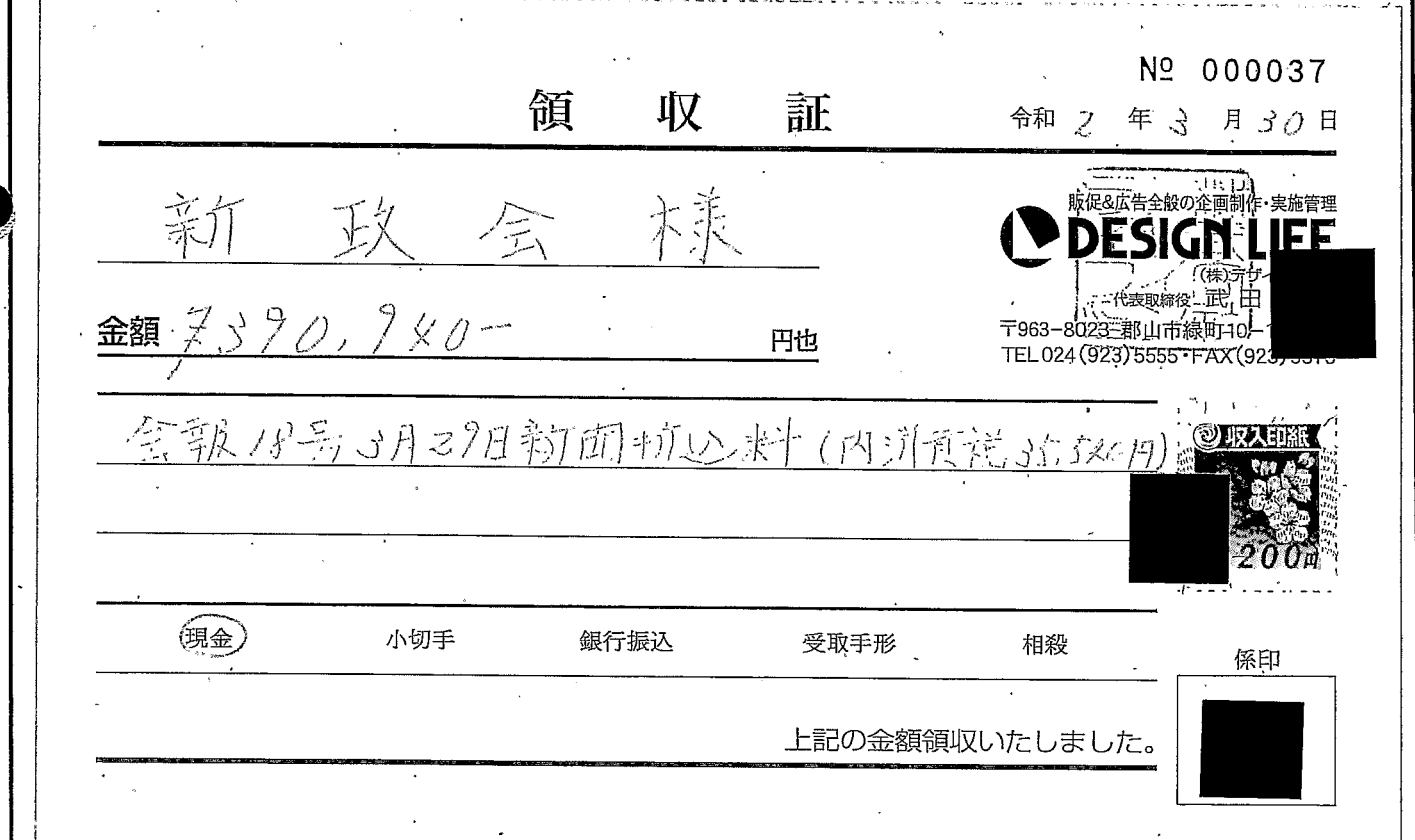 № 000037
領収証
令和 2 年 3 月 30 日
新政会 様
販促&広告全般の企画制作・実施管理
DESIGN LIFE
(株)デザイ
代表取締役 武田
金額 ¥390,940- 円也
〒963-8023 郡山市緑町10-
TEL 024(923)5555・FAX(923)
会報18号, 3月29日新聞折込料(内消費税35,540円)
収入印紙
200円
現金 小切手 銀行振込 受取手形 相殺
係印
上記の金額領収いたしました。